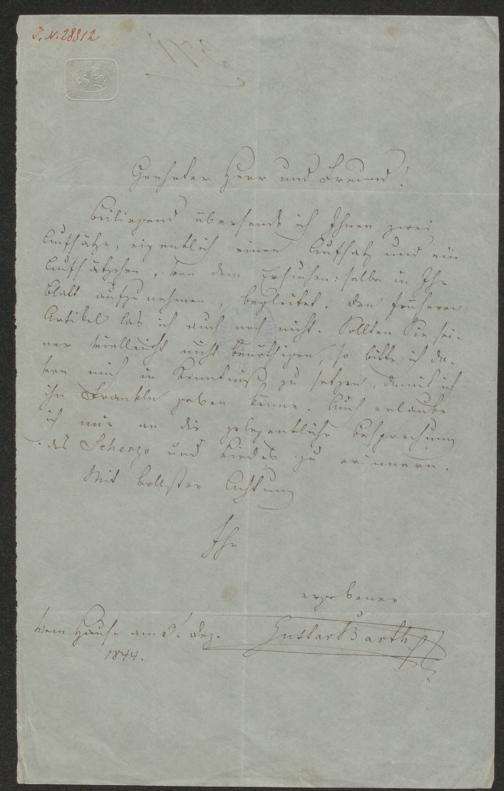 J. N. 28812
Geehrter Herr und Freund!
Beiliegend übersende ich Ihnen zwei
Aufsätze, eigentlich einen Aufsatz und ein
Aufsätzchen, von dem Ersuchen: selbe in Ihr
Blatt aufzunehmen, begleitet. Den früheren
Artikel las ich auch noch nicht. Sollten Sie sei-
ner vielleicht nicht benöthigen, so bitte ich da-
von mich in Kenntniß zu setzen, damit ich
ihn Frankln geben könne. Auch erlaube
ich mir an die gelegentliche Besprechung
des Scherzo und Liedes zu erinnern.
Mit vollster Achtung
Ihr
ergebener
Gustav Barth
Vom Hause am 5. Dez.
1844.